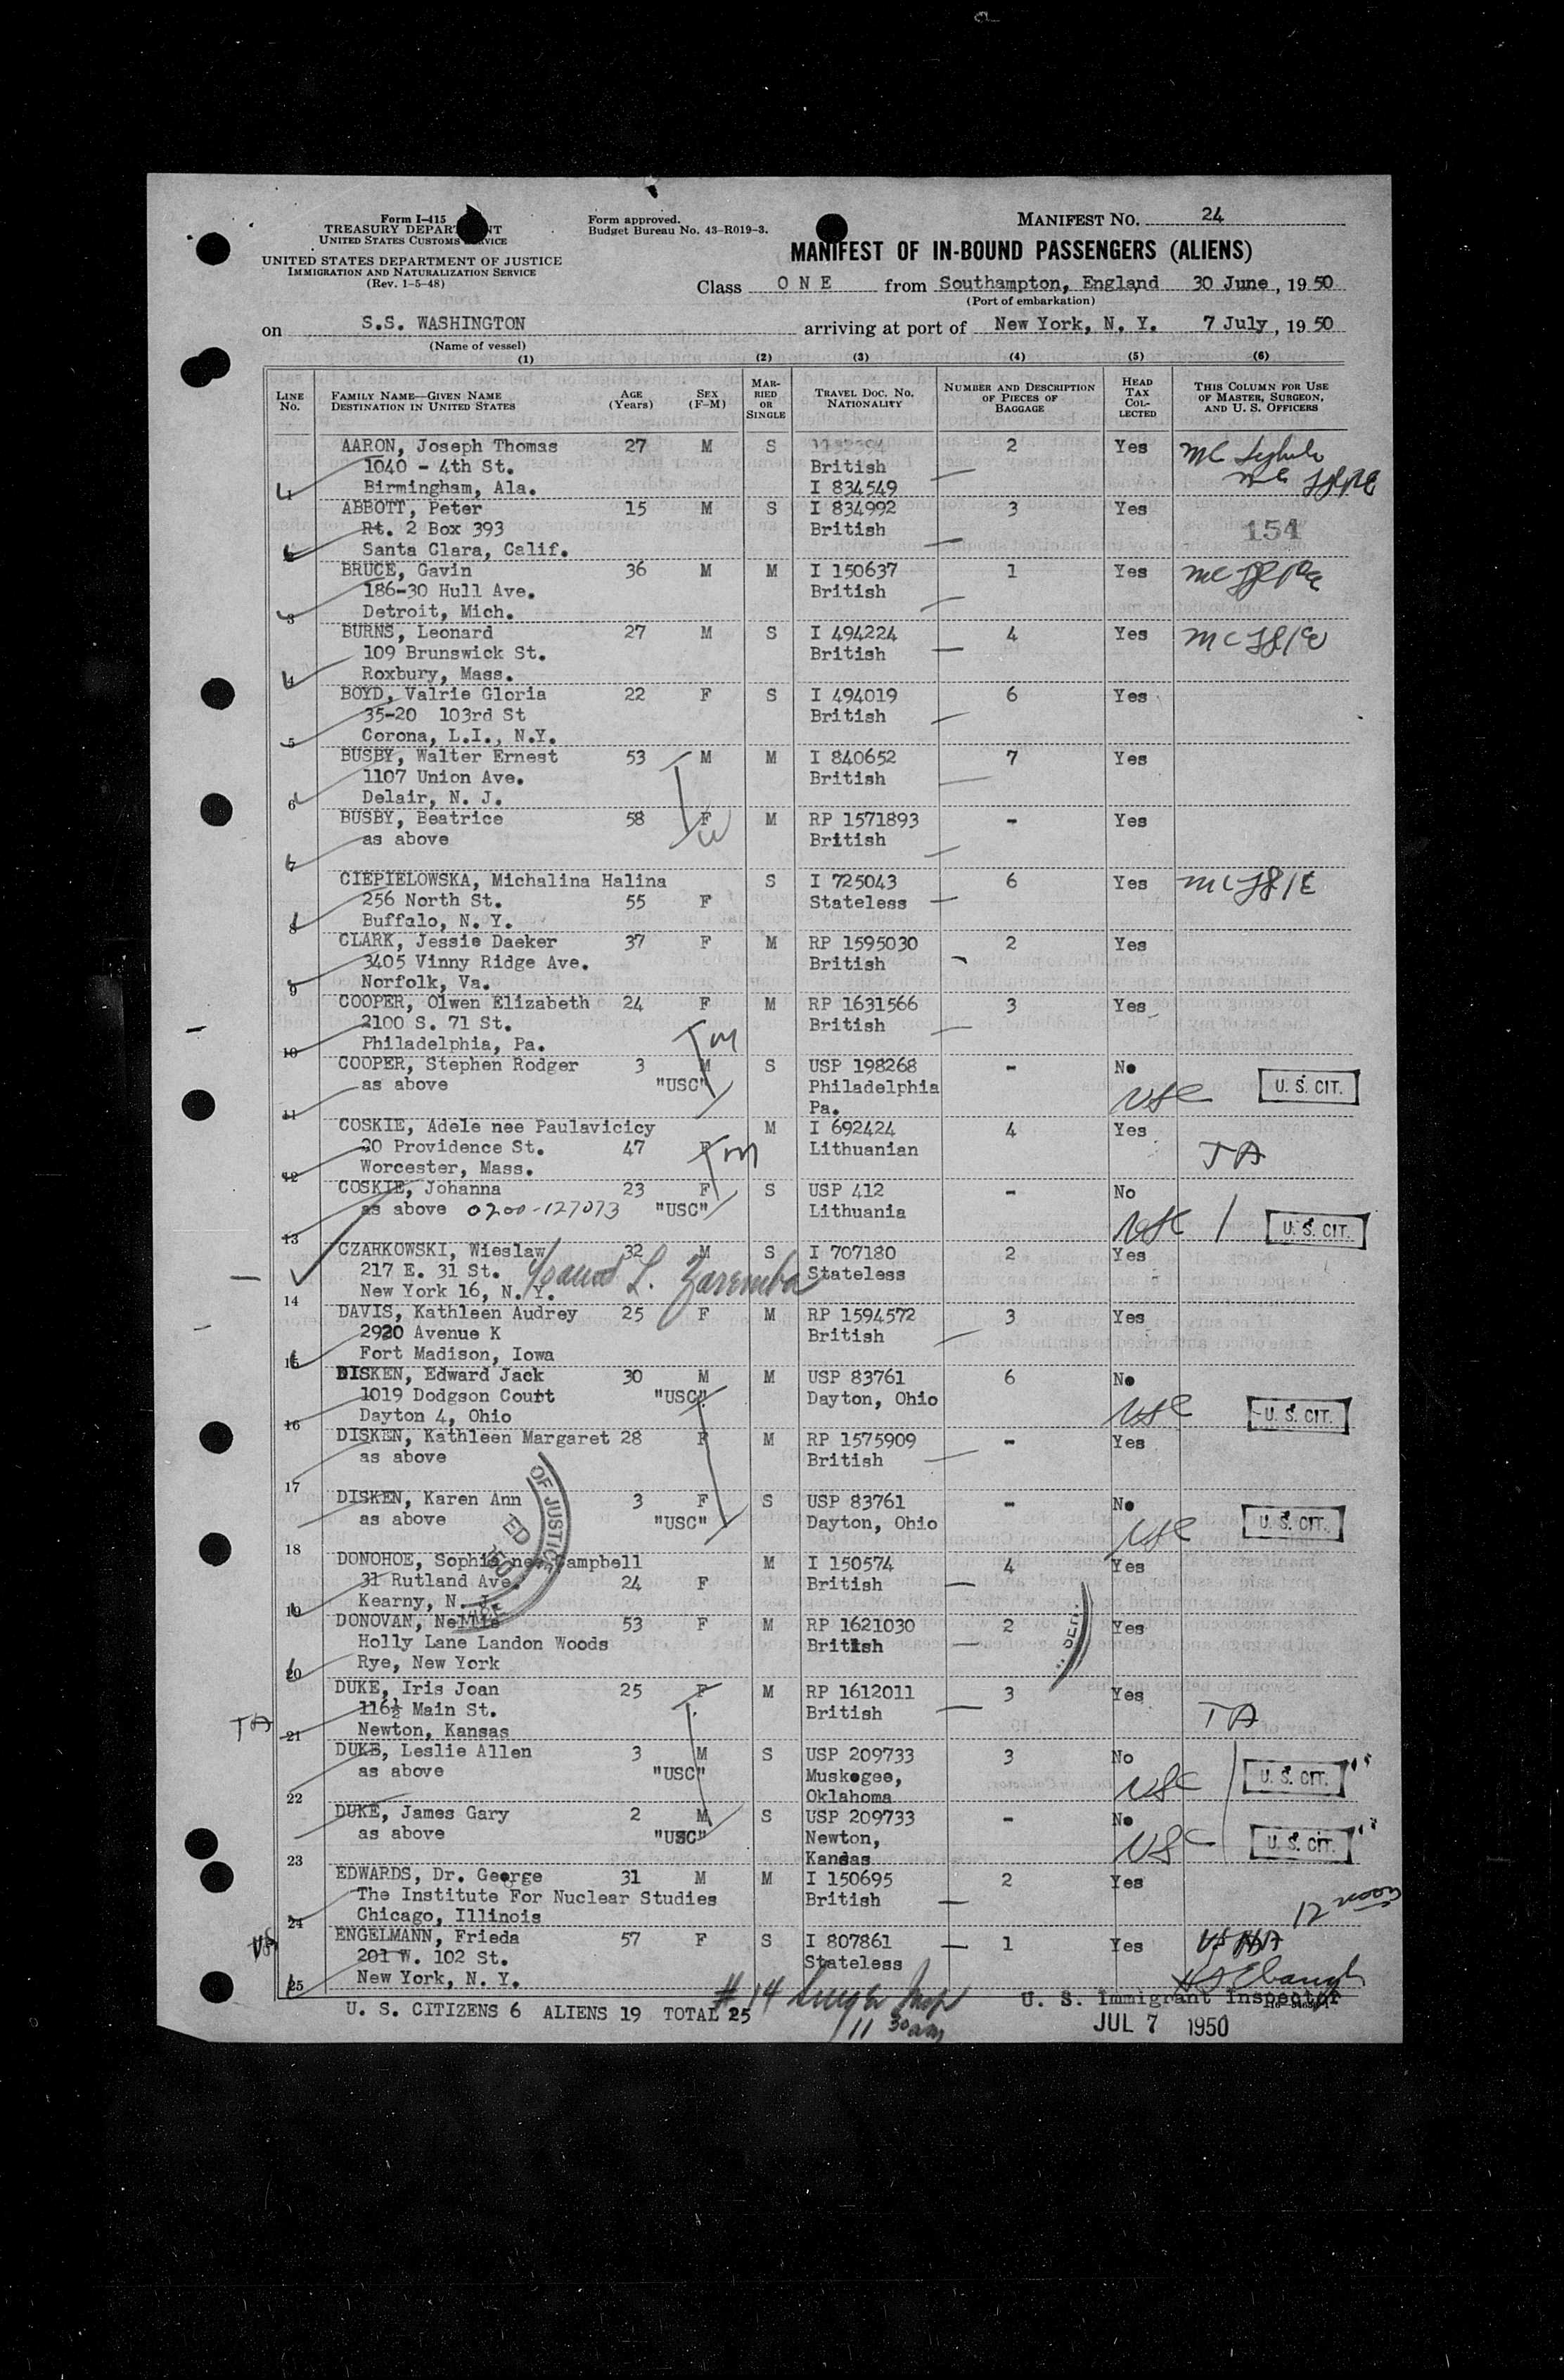 Form I-415
TREASURY DEPARTMENT
UNITED STATES CUSTOMS SERVICE
UNITED STATES DEPARTMENT OF JUSTICE
IMMIGRATION AND NATURALIZATION SERVICE
(Rev. 1-5-48)
Form approved.
Budget Bureau No. 43-R019-3.
MANIFEST NO. 24
MANIFEST OF IN-BOUND PASSENGERS (ALIENS)
Class O N E from Southampton, England 30 June, 1950
(Port of embarkation)
on S.S. WASHINGTON arriving at port of New York, N. Y. 7 July, 1950
(Name of vessel)
(1) (2) (3) (4) (5) (6)
LINE No. FAMILY NAME—GIVEN NAME DESTINATION IN UNITED STATES AGE (Years) SEX (F-M) MARRIED OR SINGLE TRAVEL DOC. NO. NATIONALITY NUMBER AND DESCRIPTION OF PIECES OF BAGGAGE HEAD TAX COLLECTED THIS COLUMN FOR USE OF MASTER, SURGEON, AND U. S. OFFICERS
AARON, Joseph Thomas 27 M S 2 Yes
1040 - 4th St. British
1 Birmingham, Ala. I 834549
ABBOTT, Peter 15 M S I 834992 3 Yes
Rt. 2 Box 393 British 154
Santa Clara, Calif.
BRUCE, Gavin 36 M M I 150637 1 Yes
186-30 Hull Ave. British
3 Detroit, Mich.
BURNS, Leonard 27 M S I 494224 4 Yes
109 Brunswick St. British
4 Roxbury, Mass.
BOYD, Valrie Gloria 22 F S I 494019 6 Yes
35-20 103rd St British
5 Corona, L.I., N.Y.
BUSBY, Walter Ernest 53 M M I 840652 7 Yes
1107 Union Ave. British
6 Delair, N. J.
BUSBY, Beatrice 58 F M RP 1571893 - Yes
as above British
7
CIEPIELOWSKA, Michalina Halina S I 725043 6 Yes
256 North St. 55 F Stateless
8 Buffalo, N. Y.
CLARK, Jessie Daeker 37 F M RP 1595030 2 Yes
3405 Vinny Ridge Ave. British
9 Norfolk, Va.
COOPER, Olwen Elizabeth 24 F M RP 1631566 3 Yes
2100 S. 71 St. British
10 Philadelphia, Pa.
COOPER, Stephen Rodger 3 M S USP 198268 - No
as above "USC" Philadelphia U. S. CIT.
11 Pa. USC
COSKIE, Adele nee Paulavicicy M I 692424 4 Yes
20 Providence St. 47 F Lithuanian TA
12 Worcester, Mass.
COSKIE, Johanna 23 F S USP 412 - No
as above 0200-127073 "USC" Lithuania
13 USC U. S. CIT.
CZARKOWSKI, Wieslaw 32 M S I 707180 2 Yes
217 E. 31 St. L. Zaremba Stateless
14 New York 16, N. Y.
DAVIS, Kathleen Audrey 25 F M RP 1594572 3 Yes
2920 Avenue K British
15 Fort Madison, Iowa
DISKEN, Edward Jack 30 M M USP 83761 6 No
1019 Dodgson Court "USC" Dayton, Ohio
16 Dayton 4, Ohio USC U. S. CIT.
DISKEN, Kathleen Margaret 28 F M RP 1575909 - Yes
as above British
17
DISKEN, Karen Ann 3 F S USP 83761 - No
as above "USC" Dayton, Ohio U. S. CIT.
18 USC
DONOHOE, Sophia nee Campbell M I 150574 4 Yes
31 Rutland Ave. 24 F British
19 Kearny, N. J.
OF JUSTICE
DONOVAN, Nellie 53 F M RP 1621030 2 Yes
Holly Lane Landon Woods British
20 Rye, New York
DUKE, Iris Joan 25 F M RP 1612011 3 Yes
116½ Main St. British TA
TA 21 Newton, Kansas
DUKE, Leslie Allen 3 M S USP 209733 3 No
as above "USC" Muskogee, U. S. CIT.
22 Oklahoma USC
DUKE, James Gary 2 M S USP 209733 - No
as above "USC" Newton, U. S. CIT.
23 Kansas USC
EDWARDS, Dr. George 31 M M I 150695 2 Yes
The Institute For Nuclear Studies British
24 Chicago, Illinois 12 noon
ENGELMANN, Frieda 57 F S I 807861 1 Yes
201 W. 102 St. Stateless
25 New York, N. Y.
U. S. CITIZENS 6 ALIENS 19 TOTAL 25
#14
11 30 am
U. S. Immigrant Inspector
JUL 7 1950